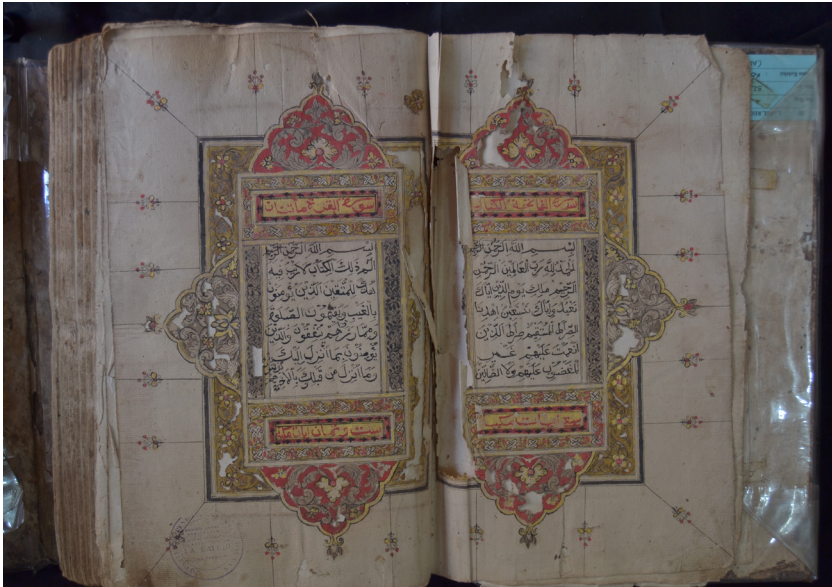 سورة الفاتحة الكتاب
بسم الله الرحمن الرحيم
الحمد لله رب العالمين الرحمن
الرحيم ملك يوم الدين اياك
نعبد واياك نستعين اهدنا
الصراط المستقيم صراط الذين
انعمت عليهم غير
المغضوب عليهم ولا الضالين
سبع ايات
سورة البقرة مائتان
بسم الله الرحمن الرحيم
الم ذلك الكتاب لا ريب فيه
هدى للمتقين الذين يؤمنون
بالغيب ويقيمون الصلوة
ومما رزقنهم ينفقون والذين
يؤمنون بما انزل اليك
وما انزل من قبلك وبالاخرة هم